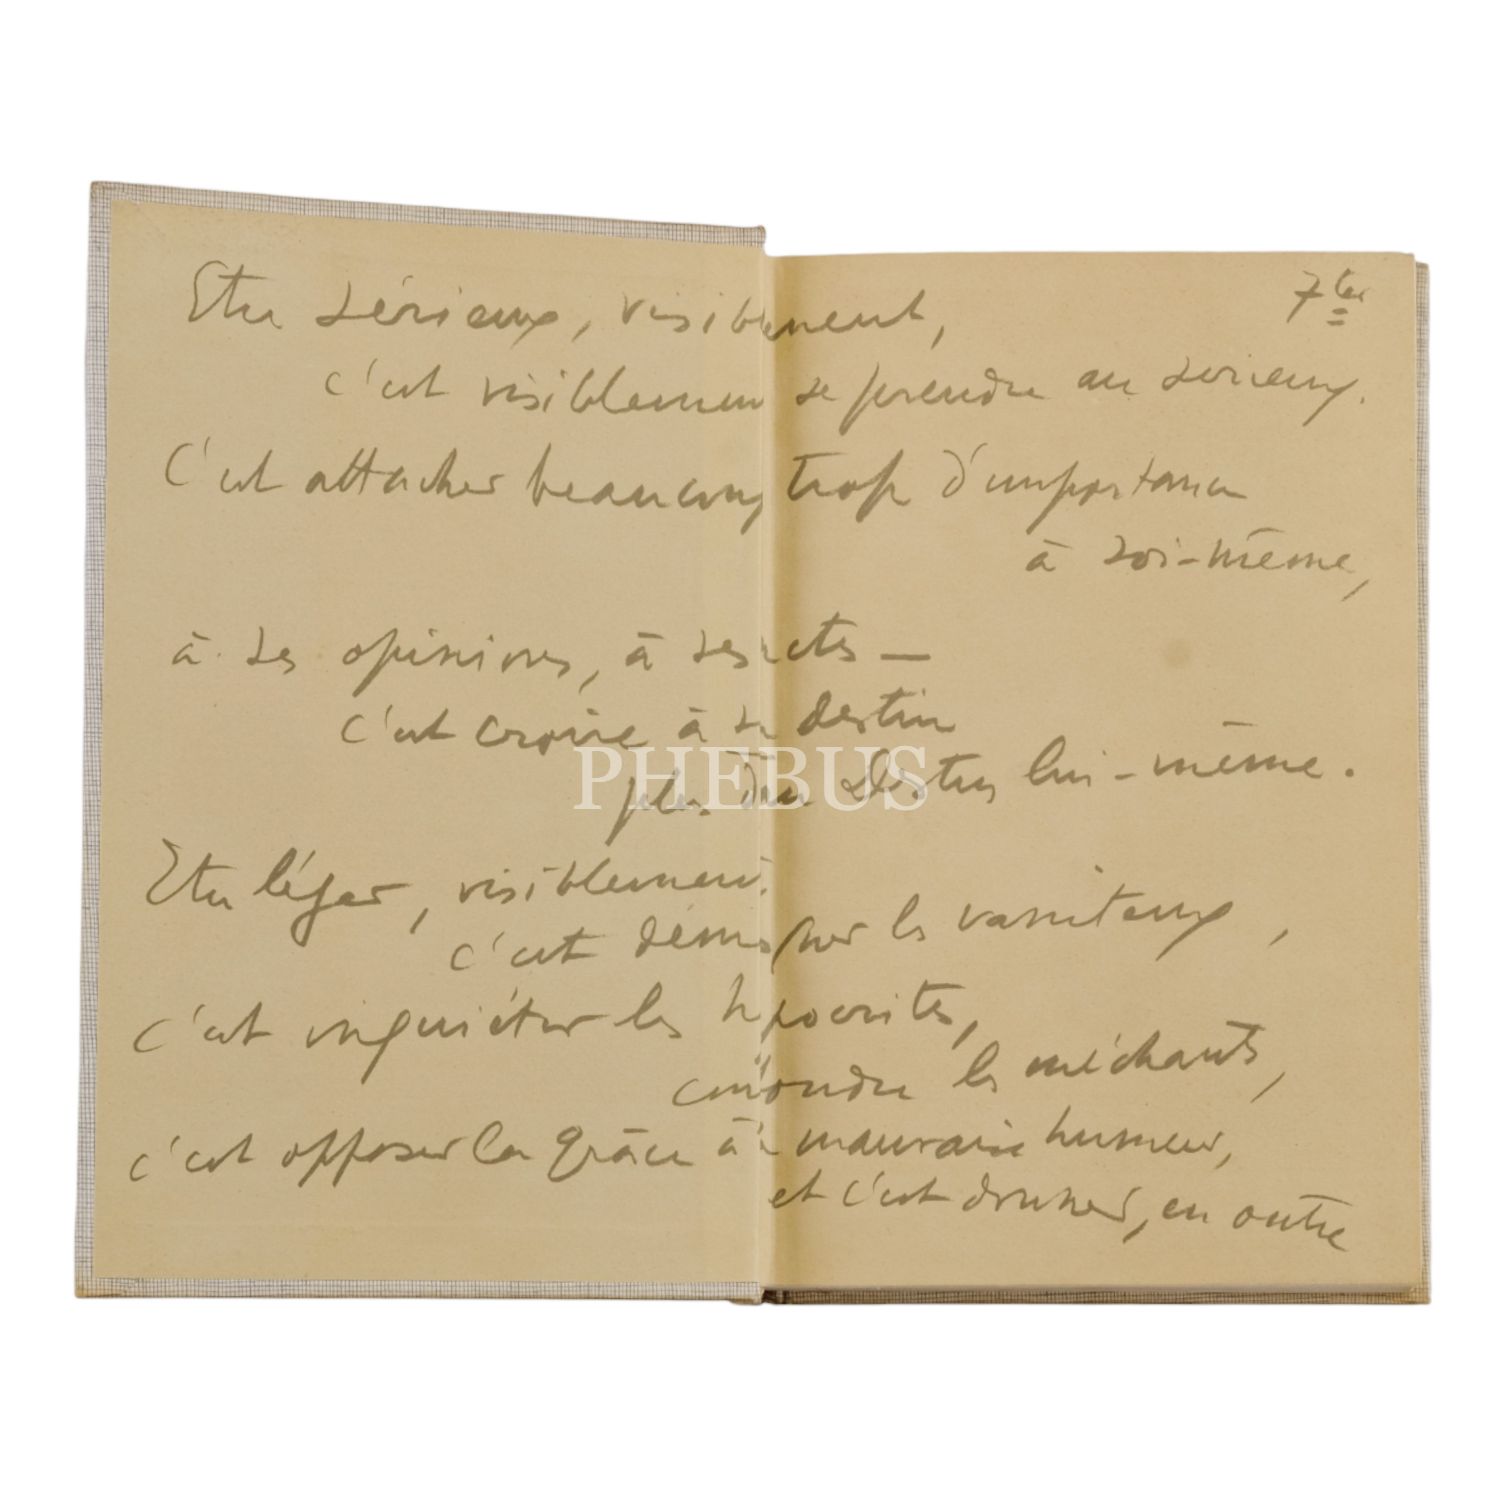 7 ter
Etre sérieux, visiblement,
c'est visiblement se prendre au sérieux.
C'est attacher beaucoup trop d'importance
à soi-même,
à ses opinions, à ses actes —
c'est croire à son destin
plus qu'au Destin lui-même.
PHEBUS
Etre léger, visiblement
c'est démasquer les vaniteux,
c'est inquiéter les hypocrites,
confondre les méchants,
c'est opposer la grâce à la mauvaise humeur,
et c'est donner, en outre